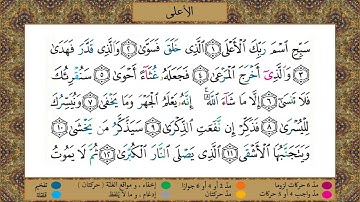 الأعلى
سَبِّحِ ٱسْمَ رَبِّكَ ٱلْأَعْلَى ١ ٱلَّذِى خَلَقَ فَسَوَّىٰ ٢ وَٱلَّذِى قَدَّرَ فَهَدَىٰ
٣ وَٱلَّذِىٓ أَخْرَجَ ٱلْمَرْعَىٰ ٤ فَجَعَلَهُۥ غُثَآءً أَحْوَىٰ ٥ سَنُقْرِئُكَ
فَلَا تَنسَىٰٓ ٦ إِلَّا مَا شَآءَ ٱللَّهُ إِنَّهُۥ يَعْلَمُ ٱلْجَهْرَ وَمَا يَخْفَىٰ ٧ وَنُيَسِّرُكَ
لِلْيُسْرَىٰ ٨ فَذَكِّرْ إِن نَّفَعَتِ ٱلذِّكْرَىٰ ٩ سَيَذَّكَّرُ مَن يَخْشَىٰ ١٠
وَيَتَجَنَّبُهَا ٱلْأَشْقَى ١١ ٱلَّذِى يَصْلَى ٱلنَّارَ ٱلْكُبْرَىٰ ١٢ ثُمَّ لَا يَمُوتُ
مدّ ٦ حركات لزوما مدّ ٢ أو ٤ أو ٦ جوازا إخفاء، ومواقع الغنّة (حركتان) تفخيم
مدّ واجب ٤ أو ٥ حركات مدّ حركتان إدغام، وما لا يلفظ قلقلة